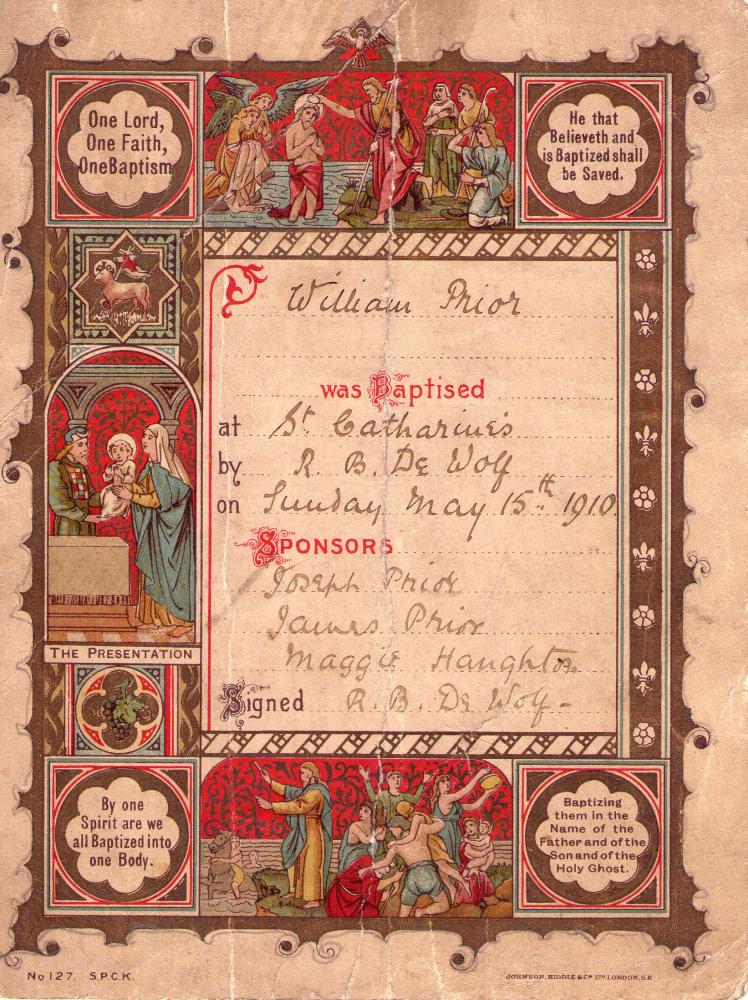 One Lord,
One Faith,
One Baptism
He that
Believeth and
is Baptized shall
be Saved.
William Prior
was Baptised
at St. Catharine's
by R. B. De Wolf
on Sunday May 15th 1910
SPONSORS
Joseph Prior
James Prior
Maggie Haughton
Signed R. B. De Wolf-
THE PRESENTATION
By one
Spirit are we
all Baptized into
one Body.
Baptizing
them in the
Name of the
Father and of the
Son and of the
Holy Ghost.
No 127. S.P.C.K.
JOHNSON, RIDDLE & Co LTD LONDON, S.E